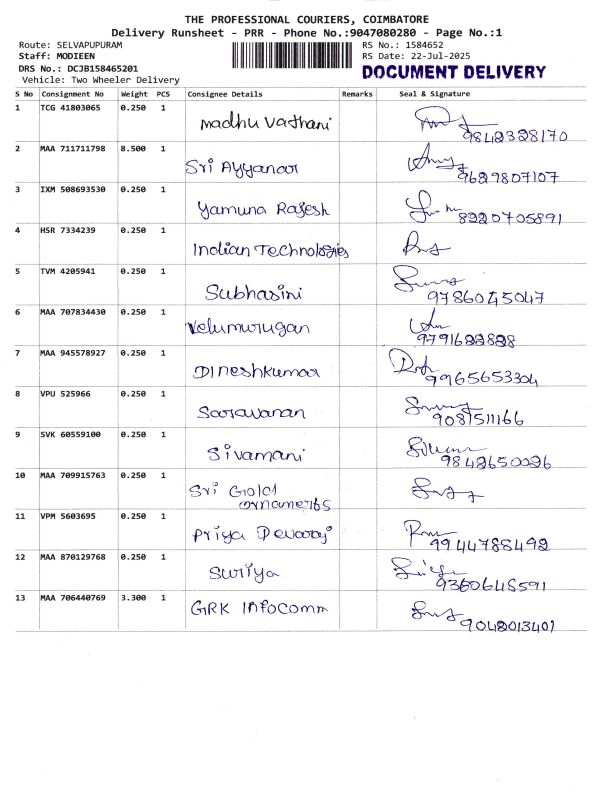 THE PROFESSIONAL COURIERS, COIMBATORE
Delivery Runsheet - PRR - Phone No.:9047080280 - Page No.:1
Route: SELVAPUPURAM
Staff: MODIEEN
DRS No.: DCJB158465201
Vehicle: Two Wheeler Delivery
RS No.: 1584652
RS Date: 22-Jul-2025
DOCUMENT DELIVERY
S No Consignment No Weight PCS Consignee Details Remarks Seal & Signature
1 TCG 41803065 0.250 1 Madhu Vathani
9842328170
2 MAA 711711798 8.500 1 Sri Ayyanar
9629807107
3 IXM 508693530 0.250 1 Yamuna Rajesh
8220705891
4 HSR 7334239 0.250 1 Indian Technologies
5 TVM 4205941 0.250 1 Subhasini
9786045047
6 MAA 707834430 0.250 1 Velumurugan
9791622828
7 MAA 945578927 0.250 1 Dineshkumar
9965653304
8 VPU 525966 0.250 1 Saravanan
9087511166
9 SVK 60559100 0.250 1 Sivamani
9842650026
10 MAA 709915763 0.250 1 Sri Gold
ornaments
11 VPM 5603695 0.250 1 Priya Devaraj
9944785492
12 MAA 870129768 0.250 1 Suriya
9360645591
13 MAA 706440769 3.300 1 GRK Infocomm
9042013401